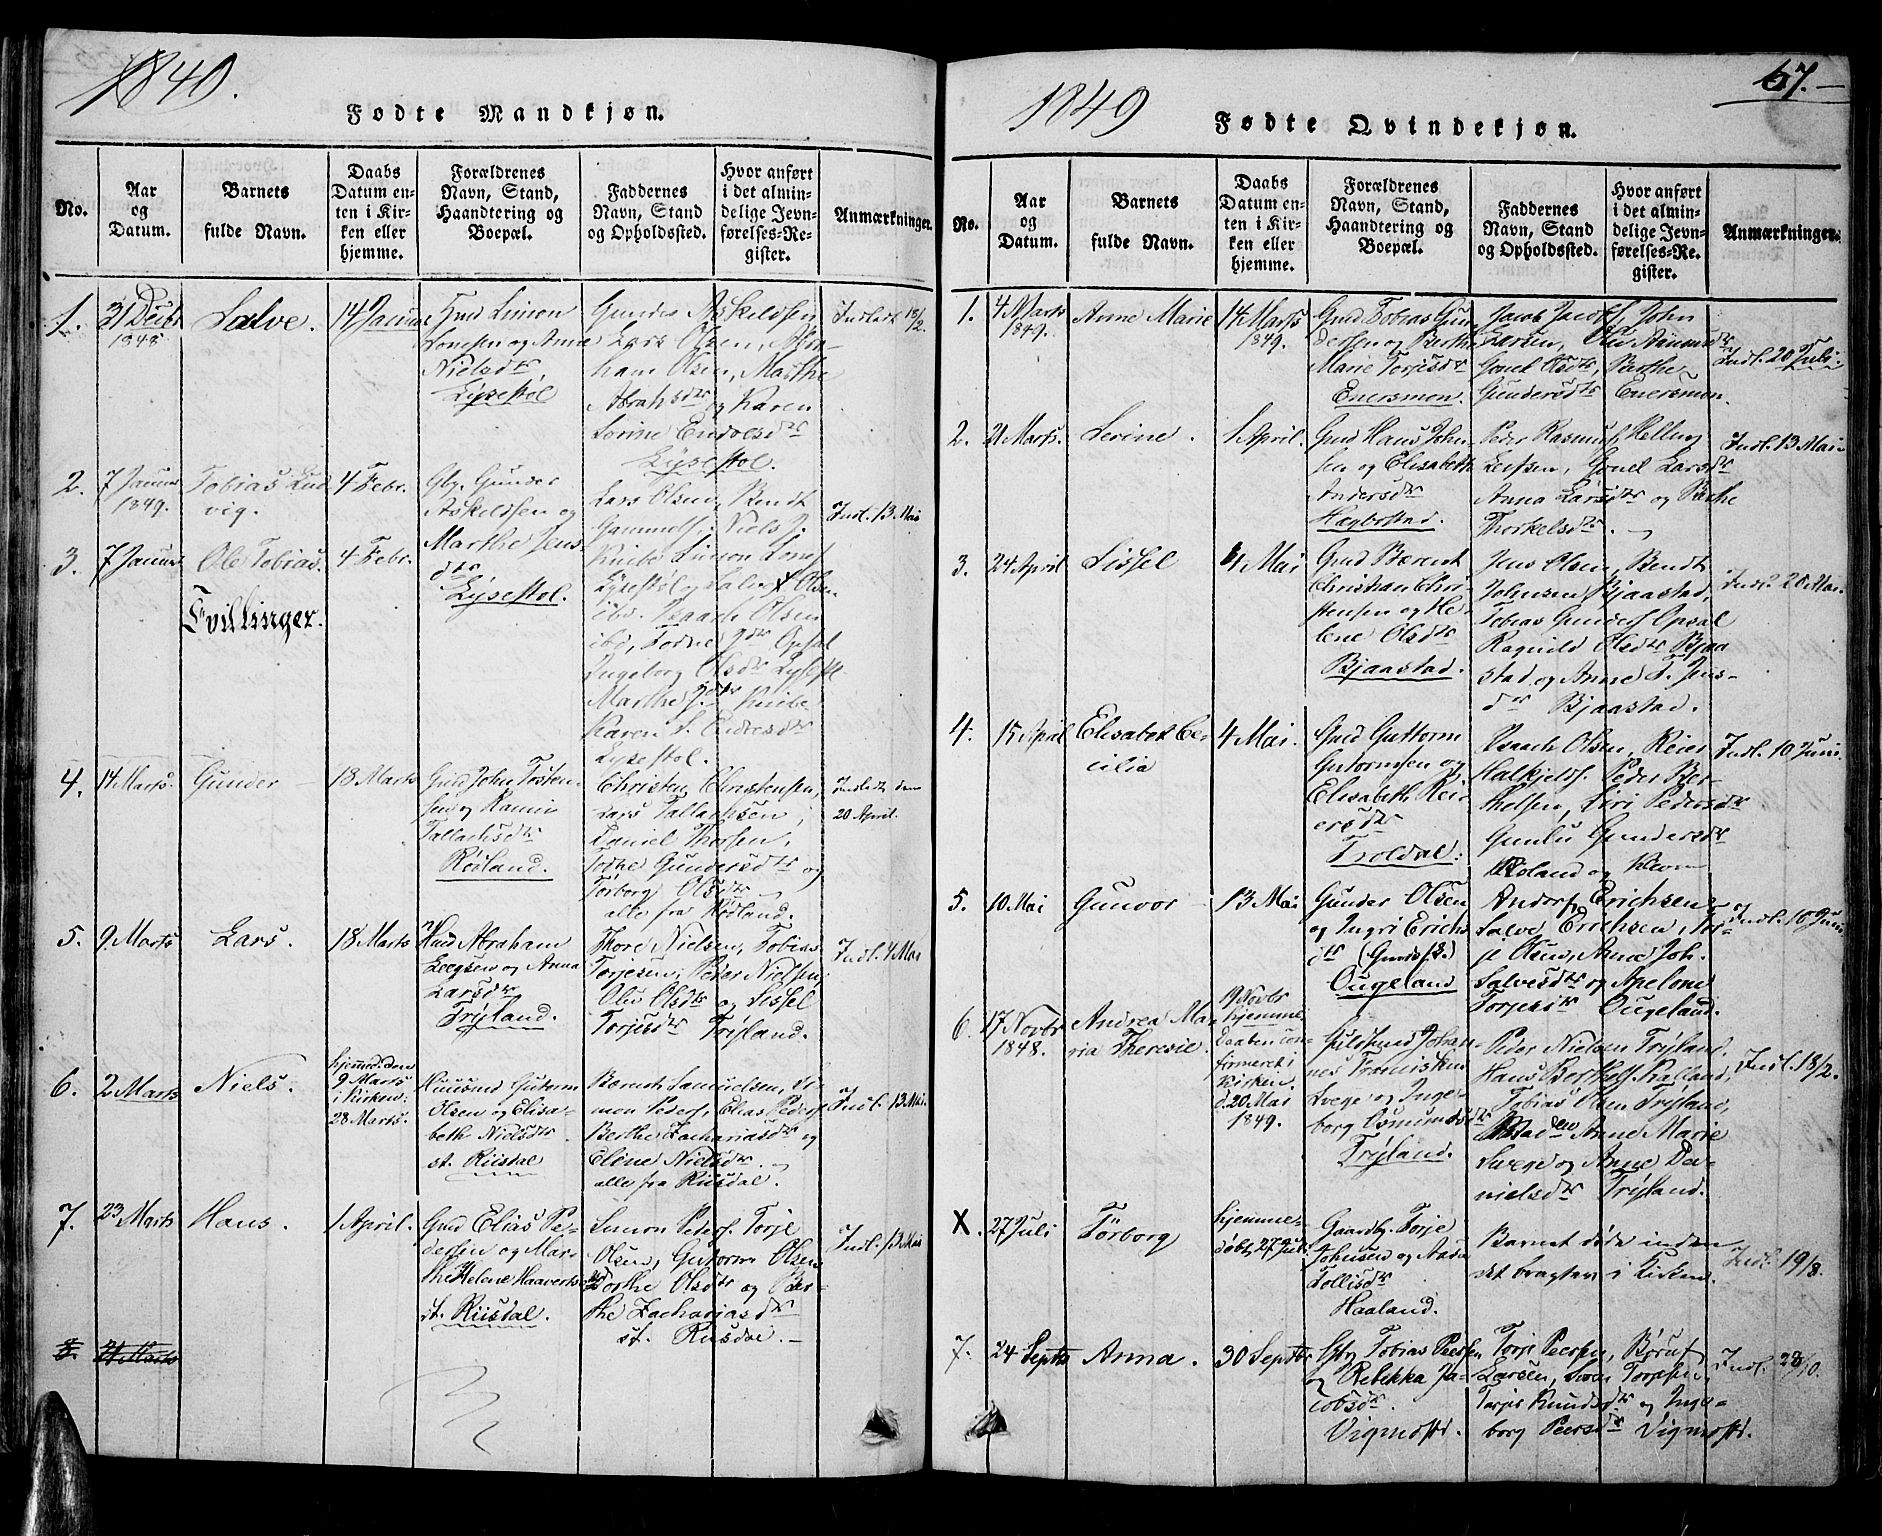 1849.
Fødte Mandkjøn.
No.
Aar
og
Datum.
Barnets
fulde Navn.
Daabs
Datum en-
ten i Kir-
ken eller
hjemme.
Forældrenes
Navn, Stand,
Haandtering og
Boepæl.
Faddernes
Navn, Stand
og Opholdssted.
Hvor anført
i det almin-
delige Jevn-
førelses-Re-
gister.
Anmærkninger.
1.
31 Decbr
1848
Salve.
14 Januar
Gmd Simon
Jonesen og Anne
Nielsdtr,
Lysestøl
Gunder Askeldsen
Lars Olsen, Abra-
ham Olsen, Marthe
Abrahsdtr og Karen
Sorine Endresdtr
Lysestøl.
Indledt 18/2
2.
7 Januar
1849.
Tobias Lud
vig.
4 Febr.
3.
7 Januar
Ole Tobias
Tvillinger.
4 Febr.
Gunder
Askeldsen og
Marthe Jens
dtr
Lysestøl.
Lars Olsen, Bendt
Gammels. Niels J.
Knibe Simon Jones
Lysestøl
ibd. Isaach Olsen
ibd,
Ingeborg Olsdtr Lysestl.
Marthe J.dtr Knibe
Karen S. Endresdtr
Lysestøl.
Indl. 13 Mai
4.
14 Marts.
Gunder
18 Marts
Gmd John Tosten
sen og Ramie
Tallachsdtr
Røisland.
Christen Christensen,
Lars Tallachsen,
Daniel Thorsen,
Tothe Gundersdtr og
Torborg Olsdtr
alle fra Rødland.
Indledt den
20 April.
5.
9 Marts
Lars.
18 Marts
Hmd Abraham
og Anna
Larsdtr
Trÿland.
Thore Nielsen, Tobias
Torjesen, Peder Nielsen,
Olev Olsdtr og Sissel
Torjesdtr Trÿland.
Indl. 4 Mai
6.
2 Marts
Niels.
hjemmed. den
9 Marts
i Kirken:
28 Marts.
Huusmd Gutorm
Olsen og Elisa-
beth Nielsdtr
st. Riisdal
Berent Samuelsen, Si-
mon Peders, Elias Peders
Berthe Zachariasdtr og
Elene Nielsdtr
alle fra Riisdal.
Indl. 13 Mai.
7.
23 Marts
Hans.
1 April.
Gmd Elias Pe-
dersen og Mar-
the Helene Haavorts
st. Riisdal.
Simon Peders. Torje
Olsen, Gutorm Olsen
Dorthe Olsdtr og Ber-
the Zachariasdtr
st. Riisdal.
Indl. 13 Mai
8.
21 Marts
1849
67.
Fødte Qvindekjøn.
No.
Aar
og
Datum.
Barnets
fulde Navn.
Daabs
Datum en-
ten i Kir-
ken eller
hjemme.
Forældrenes
Navn, Stand,
Haandtering og
Boepæl.
Faddernes
Navn, Stand
og Opholdssted.
Hvor anført
i det almin-
delige Jevn-
førelses-Re-
gister.
Anmærkninger.
1.
4 Marts
1849.
Anne Marie
14 Marts
1849.
Gmd Tobias Gun
dersen og Berthe
Marie Torjesdtr
Enersmon.
Jacob Jacobs, John
Larsen, Olev Aanensdtr
Gonel Olsdtr, Berthe
Gundersdtr Enersmon.
Indl. 20 Juli
2.
21 Marts.
Serine.
1 April.
Gmd Hans John-
sen og Elisabeth
Andersdtr
Hægbostad.
Peder Rasmus, Helling
Leefsen, Gonel Larsdtr
Anna Larsdtr og Berthe
Thorkelsdtr.
Indl. 13 Mai.
3.
24 April
Sissel
4 Mai
Gmd Bærent
Christian Chri-
stensen og He-
lene Olsdtr
Bjaastad.
Jens Olsen, Bendt
Johnsen Bjaastad,
Tobias Gunders Opsal
Ragnild Olsdtr Bjaa
stad og Anne T. Jens-
dtr Bjaastad.
Indl. 20 Mai.
4.
15 April
Elisabet Ce-
cilia
4 Mai.
Gmd Guttorm
Gutormsen og
Elisabeth Rei-
ersdtr
Troldal.
Isaach Olsen, Reier
Halkjels. Peder Ber-
thelsen, Siri Pedersdtr
Gunlu Gundersdtr
Røsland og Kleven
Indl. 10 Juni.
5.
10 Mai
Gunvor
13 Mai
Gunder Olsen
og Ingri Erichs
dtr (Gmdsf.)
Ougeland
Andors Erichsen og
Salve Erichsen, Tor-
je Olsen, Anne Joh.
Salvesdtr og Apelone
Torjesdtr Ougeland.
Indl. 10 Juni
6.
17 Novbr
1848.
Andrea Ma-
ria Theresie.
19 Novbr
hjemme-
Daaben con-
firmeret i
Kirken.
d. 20 Mai
1849.
Gildsmd Johan-
nes
Svege og Inge-
borg Osmundsdtr
Trÿland.
Peder Nielsen Trÿland.
Hans Berthels. Røsland,
Tobias Olsen Trÿland,
Anne Marie
Svege og Anne Da-
nielsdtr Trÿland.
Indl. 18/2.
X.
27 Juli
Torborg
hjemme-
døbt 27 Juli
Gaardbr. Torje
Johnsen og Aasne
Tollisdtr
Haaland.
Barnet døde inden
det bragtes i Kirken.
Indl. 19/8.
7.
24 Septbr
Anna.
30 Septbr
Gbr Tobias Peersen
og Rebekka Ja-
cobsdtr.
Vigmostd.
Torje Peersen, Børuf
Larsen, Soren Torjesen,
Torjer Knudsdtr og Inge-
borg Peersdtr Vigmostd.
Indl. 28/10.